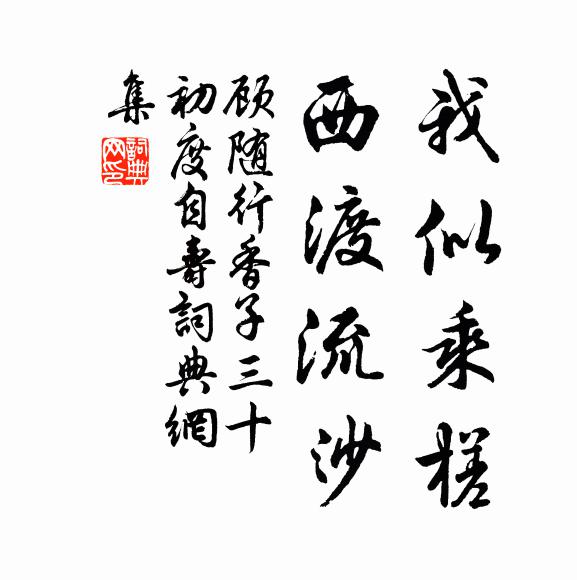 我似乘槎
西渡流沙
顾随行香子三十
初度自壽詞典網
集
詞典
网印